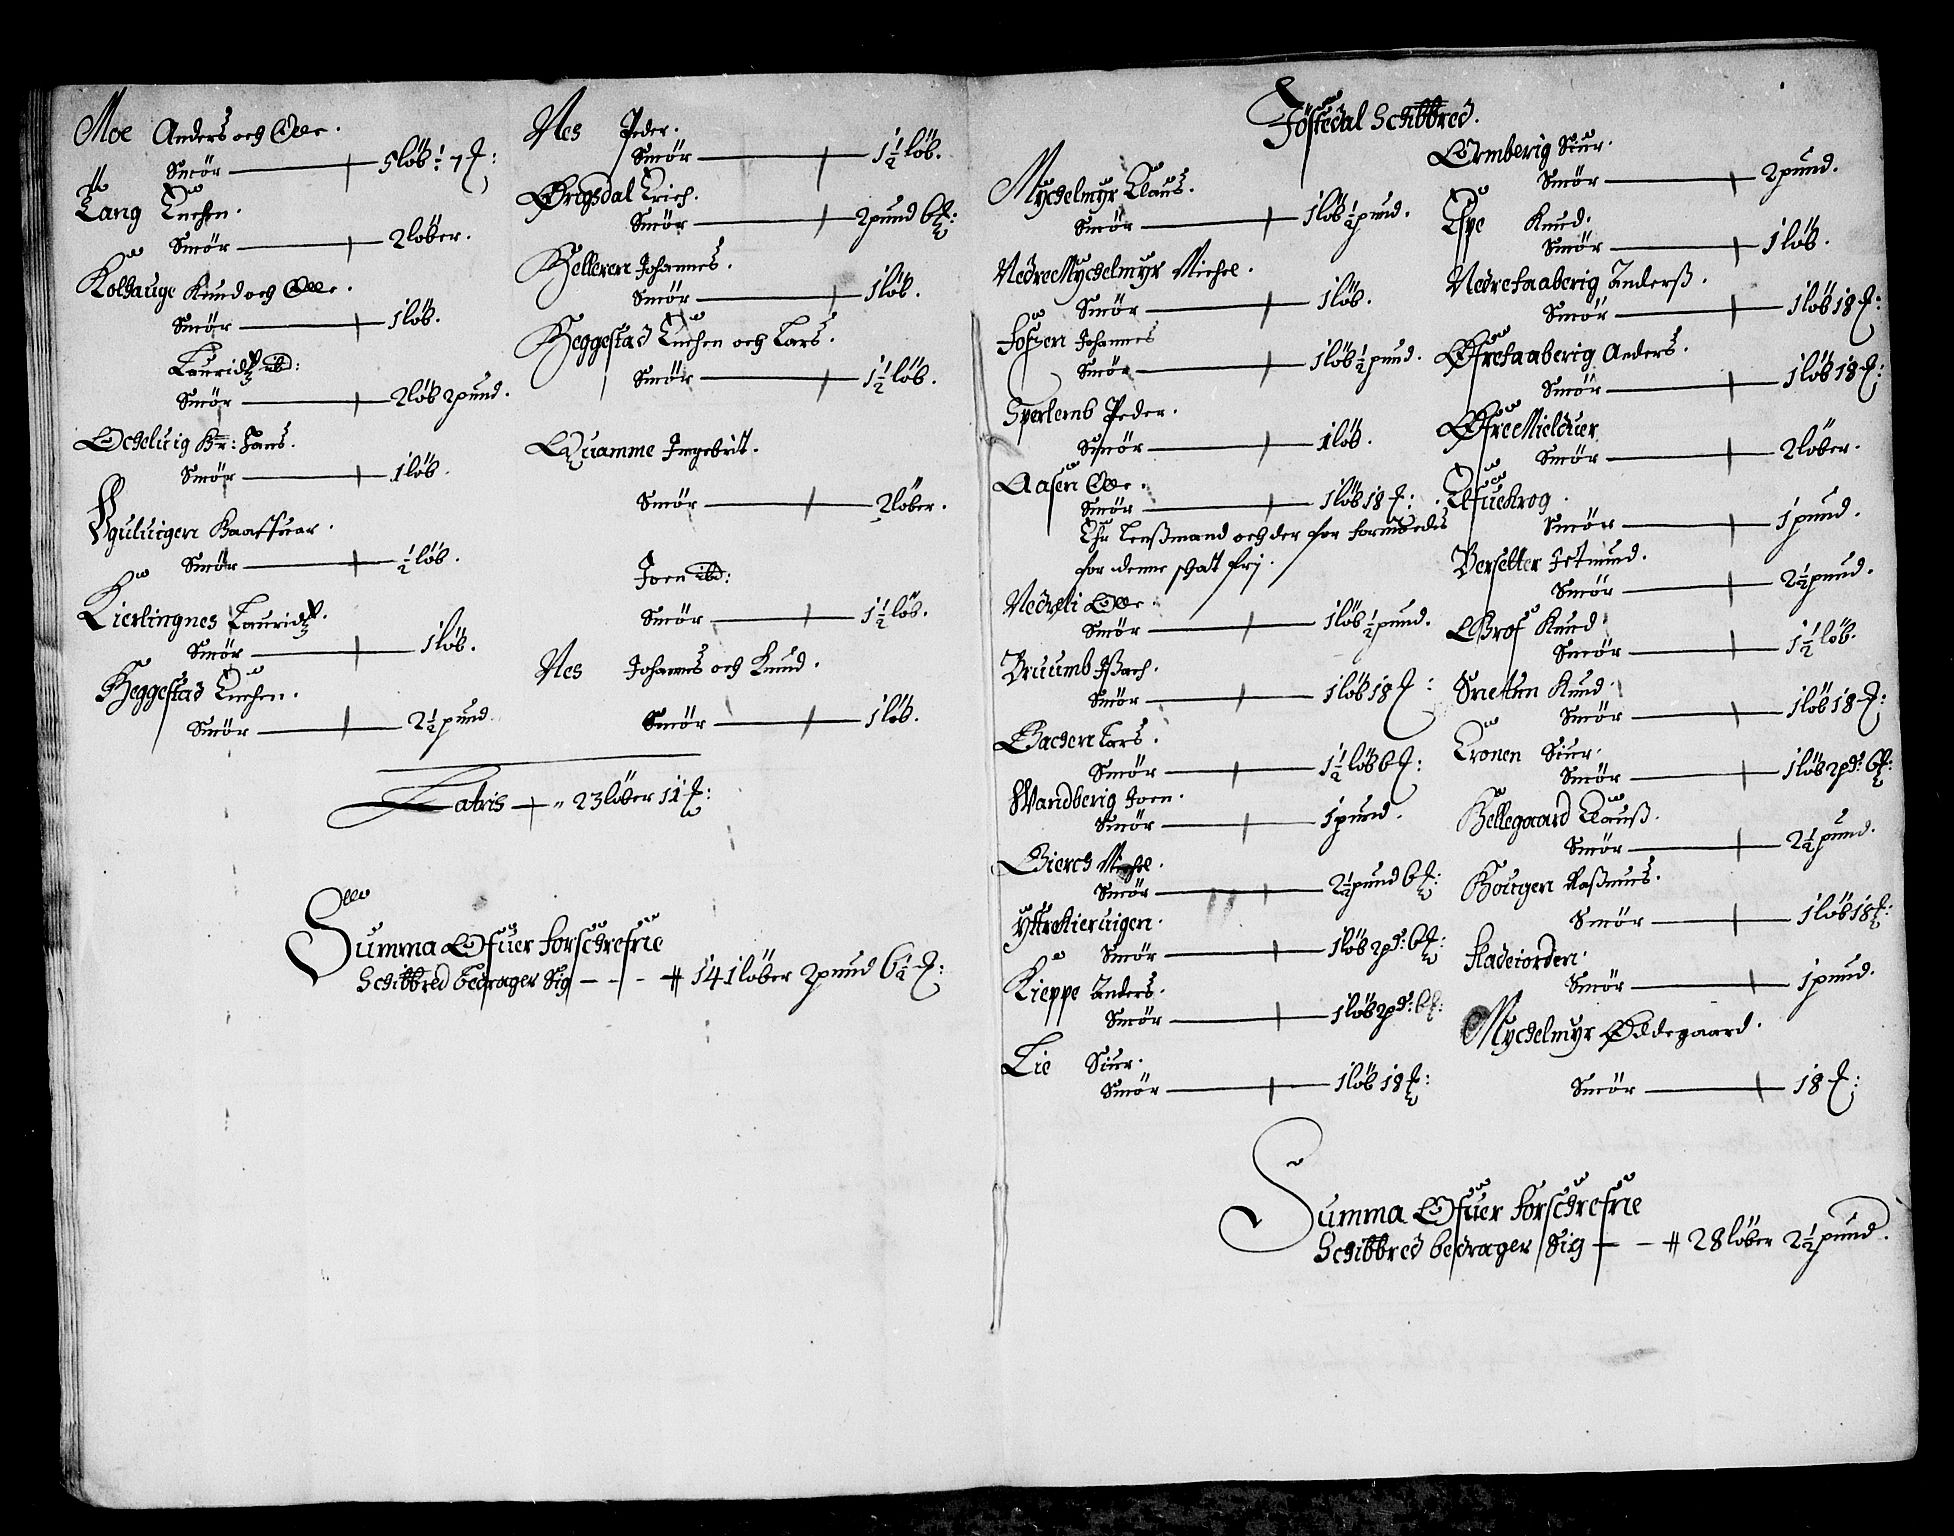 Moe Anders och Olle.
Smör — 5 löb: 7 ℔:
Tang Euchen.
Smör — 2 löber.
Kolhauge Knud och Olle.
Smör — 1 löb.
Lauridtz ibd:
Smör — 2 löb 2 pund.
Ochelvig Hr: Hans.
Smör — 1 löb.
Smör — ½ löb.
Kierlingnes Lauridtz.
Smör — 1 löb.
Heggestad Euchen.
Smör — 2½ pund
Nes Peder.
Smör — 1½ löb.
Ørigsdal Erich.
Smör — 2 pund 6 ℔:
Helleren Johannes.
Smör — 1 löb.
Heggestad Euchen och Lars.
Smör — 1½ löb.
Quamme Ingebrit.
Smör — 2 löber.
Joen ibd:
Smör — 1½ löb.
Nes Johannes och Knud.
Smör — 1 löb.
Latris — 23 löber 11 ℔:
Summa Ofuer forschrefne
Schibbred bedrager Sig — 141 löber 2 pund 6½ ℔:
Jöstedal Schibbred.
Mychelmyr Claus.
Smör — 1 löb ½ pund.
Nedre Mychelmyr Michel.
Smör — 1 löb.
Fossen Johannes
Smör — 1 löb ½ pund.
Sperlemb Peder.
Smör — 1 löb.
Aasen Olle.
Smör — 1 löb 18 ℔:
Ehr Lenssmand och der for formeedis
for denne schatt frj.
Nedreli Olle.
Smör — 1 löb ½ pund.
Bruumb Issach.
Smör — 1 löb 18 ℔:
Bachen Lars.
Smör — 1½ löb 6 ℔:
Wandberig Joen.
Smör — 1 pund.
Bierch Michel.
Smör — 2½ pund 6 ℔:
Yttrekieruigen.
Smör — 1 löb 2 pd: 6 ℔:
Kieppe Anders.
Smör — 1 löb 2 pd: 6 ℔:
Lie Siur.
Smör — 1 löb 18 ℔:
Ormberig Siur.
Smör — 2 pund.
Espe Knud.
Smör — 1 löb.
Nedrefaaberig Anderss.
Smör — 1 löb 18 ℔:
Øfrefaaberig Anders.
Smör — 1 löb 18 ℔:
Øfre Mielduer
Smör — 2 löber.
Elfuekrog.
Smör — 1 pund.
Bersetter Jetmund.
Smör — 2½ pund.
Grof Knud
Smör — 1½ löb.
Snettun Knud.
Smör — 1 löb 18 ℔:
Cronen Siur.
Smör — 1 löb 2 pd: 6 ℔:
Hellegaard Clauss.
Smör — 2½ pund.
Hougen Rassmus.
Smör — 1 löb 18 ℔:
Fladeiorden.
Smör — 1 pund.
Mychelmyr Øddegaard.
Smör — 18 ℔:
Summa Ofuer forschrefne
Schibbred bedrager Sig — 28 löber 2½ pund.